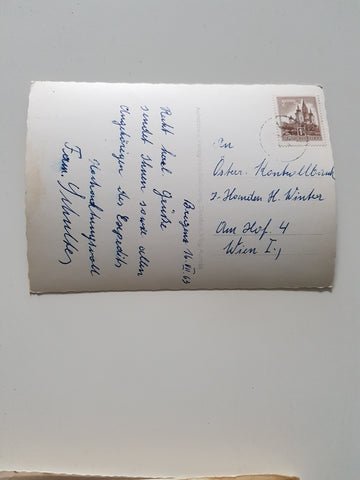 Bregenz 16. VII 63
Recht herzl. Grüße
sendet Ihnen sowie allen
Angehörigen des Expedits
Hochachtungsvoll
Fam.
An
Österr. Kontrollbank
z. Handen H. Winter
Am Hof 4
Wien I.,